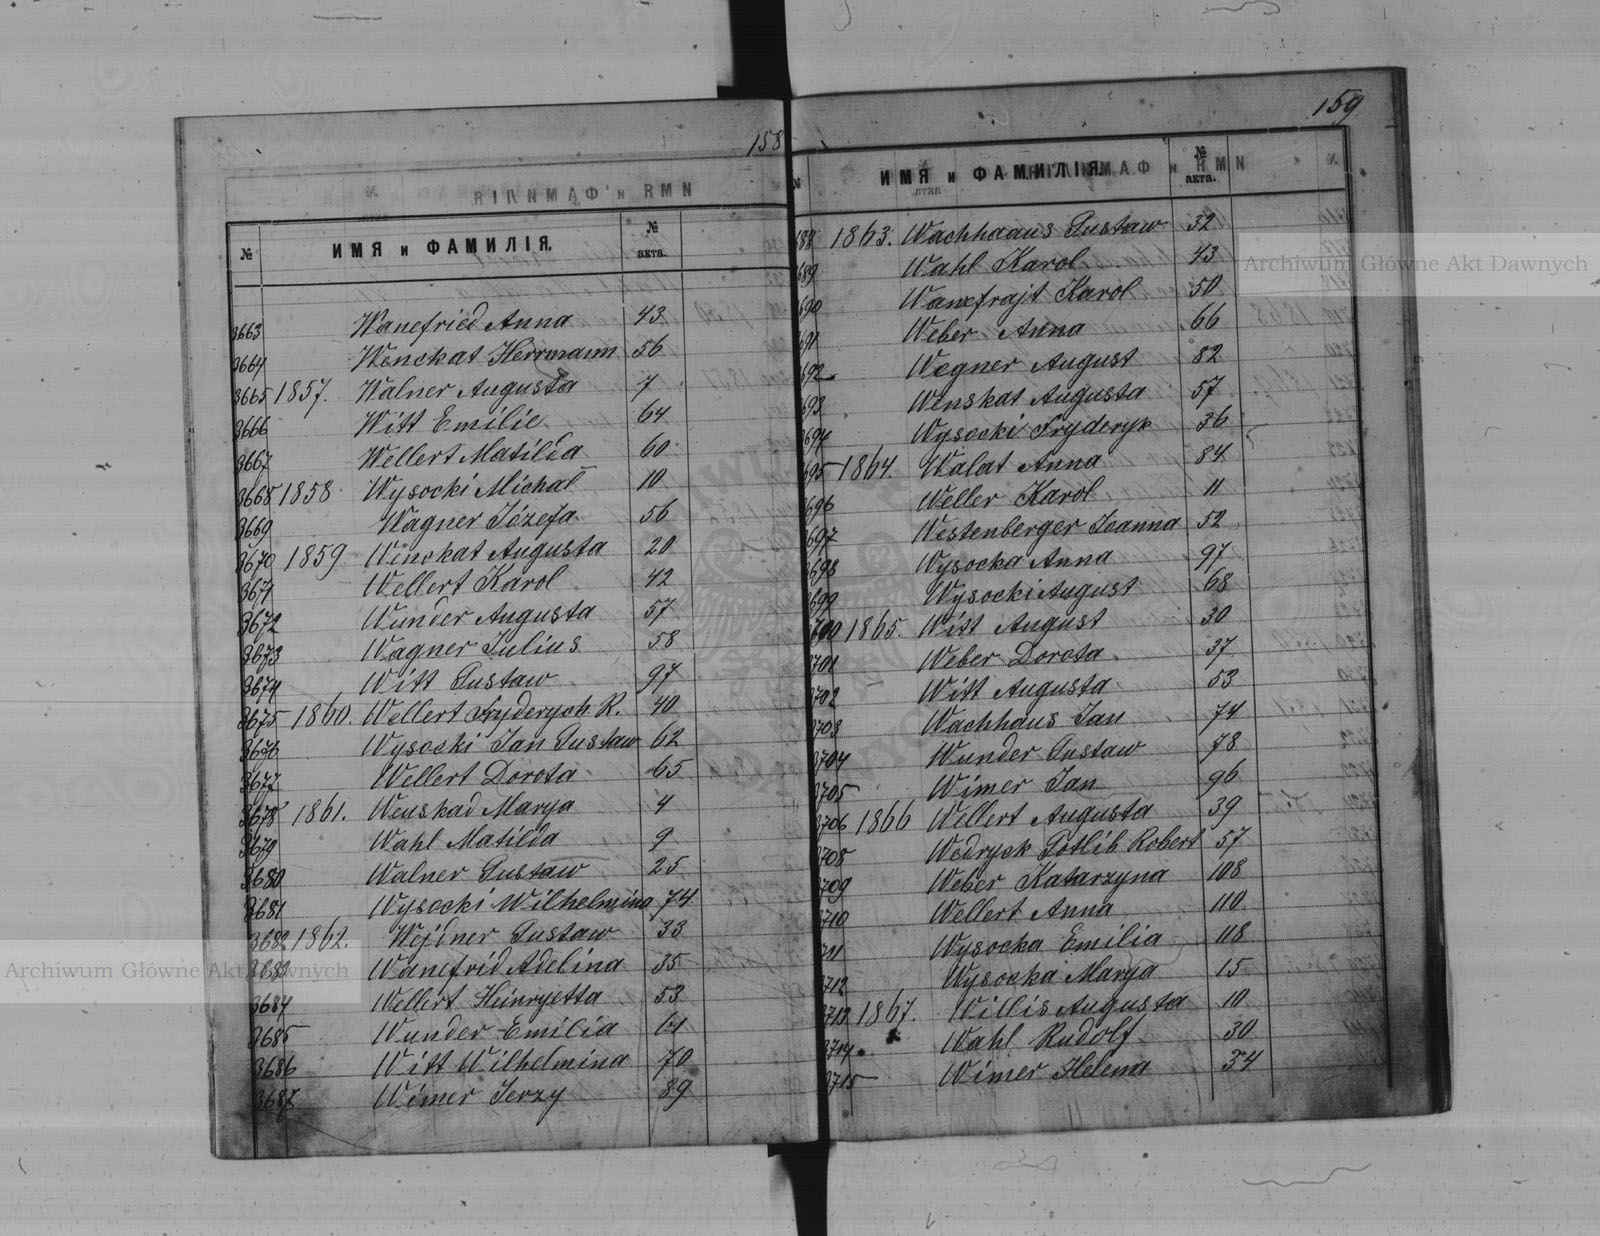 158
№ ИМЯ и ФАМИЛІЯ. № акта.
3663 Wanefried Anna 43
3664 Wenckat Herrmann 56
3665 1857. Walner Augusta 7
3666 Witt Emilie 64
3667 Wellert Matilda 60
3668 1858 Wysocki Michał 10
3669 Wagner Józefa 56
3670 1859 Winckat Augusta 20
3671 Wellert Karol 42
3672 Wunder Augusta 57
3673 Wagner Julius 58
3674 Witt Gustaw 97
3675 1860. Wellert Fryderych R. 40
3676 Wysocki Jan Gustaw 62
3677 Wellert Dorota 65
3678 1861. Wenskad Marya 4
3679 Wahl Matilda 9
3680 Walner Gustaw 25
3681 Wysocki Wilhelmina 74
3682 1862. Wejdner Gustaw 33
3683 Wanefrid Adelina 35
3684 Wellert Heinryetta 53
3685 Wunder Emilia 61
3686 Witt Wilhelmina 70
3687 Wimer Jerzy 89
159
№ ИМЯ и ФАМИЛІЯ. № акта.
688 1863. Wachhaaus Gustaw 32
689 Wahl Karol 43
690 Wanefrajt Karol 50
691 Weber Anna 66
692 Wegner August 82
693 Wenskat Augusta 57
694 Wysocki Fryderyk 36
695 1864. Walat Anna 84
696 Weller Karol 11
697 Westenberger Joanna 52
698 Wysocka Anna 97
699 Wysocki August 68
700 1865. Witt August 30
3701 Weber Dorota 37
3702 Witt Augusta 53
3703 Wachhaus Jan 74
3704 Wunder Gustaw 78
3705 Wimer Jan 96
3706 1866 Wellert Augusta 39
3708 Wedryck Gotlib Robert 57
3709 Weber Katarzyna 108
3710 Wellert Anna 110
711 Wysocka Emilia 118
3712 Wysocka Marya 15
3713 1867. Willis Augusta 10
3714 Wahl Rudolf 30
3715 Wimer Helena 34
Archiwum Główne Akt Dawnych
Archiwum Główne Akt Dawnych